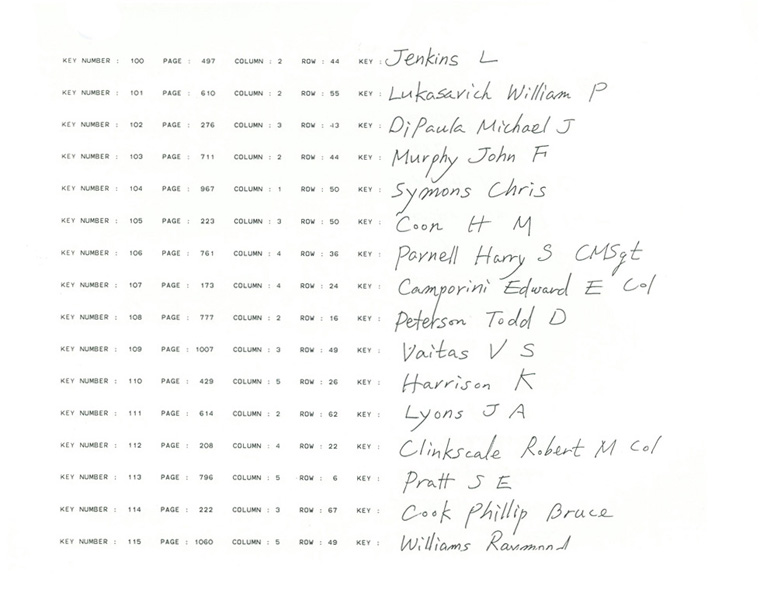 KEY NUMBER : 100 PAGE : 497 COLUMN : 2 ROW : 44 KEY : Jenkins L
KEY NUMBER : 101 PAGE : 610 COLUMN : 2 ROW : 55 KEY : Lukasavich William P
KEY NUMBER : 102 PAGE : 276 COLUMN : 3 ROW : 43 KEY : DiPaula Michael J
KEY NUMBER : 103 PAGE : 711 COLUMN : 2 ROW : 44 KEY : Murphy John F
KEY NUMBER : 104 PAGE : 967 COLUMN : 1 ROW : 50 KEY : Symons Chris
KEY NUMBER : 105 PAGE : 223 COLUMN : 3 ROW : 50 KEY : Coon H M
KEY NUMBER : 106 PAGE : 761 COLUMN : 4 ROW : 36 KEY : Parnell Harry S CMSgt
KEY NUMBER : 107 PAGE : 173 COLUMN : 4 ROW : 24 KEY : Camporini Edward E Col
KEY NUMBER : 108 PAGE : 777 COLUMN : 2 ROW : 16 KEY : Peterson Todd D
KEY NUMBER : 109 PAGE : 1007 COLUMN : 3 ROW : 49 KEY : Vaitas V S
KEY NUMBER : 110 PAGE : 429 COLUMN : 5 ROW : 26 KEY : Harrison K
KEY NUMBER : 111 PAGE : 614 COLUMN : 2 ROW : 62 KEY : Lyons J A
KEY NUMBER : 112 PAGE : 208 COLUMN : 4 ROW : 22 KEY : Clinkscale Robert M Col
KEY NUMBER : 113 PAGE : 796 COLUMN : 5 ROW : 6 KEY : Pratt S E
KEY NUMBER : 114 PAGE : 222 COLUMN : 3 ROW : 67 KEY : Cook Phillip Bruce
KEY NUMBER : 115 PAGE : 1060 COLUMN : 5 ROW : 49 KEY : Williams Raymond